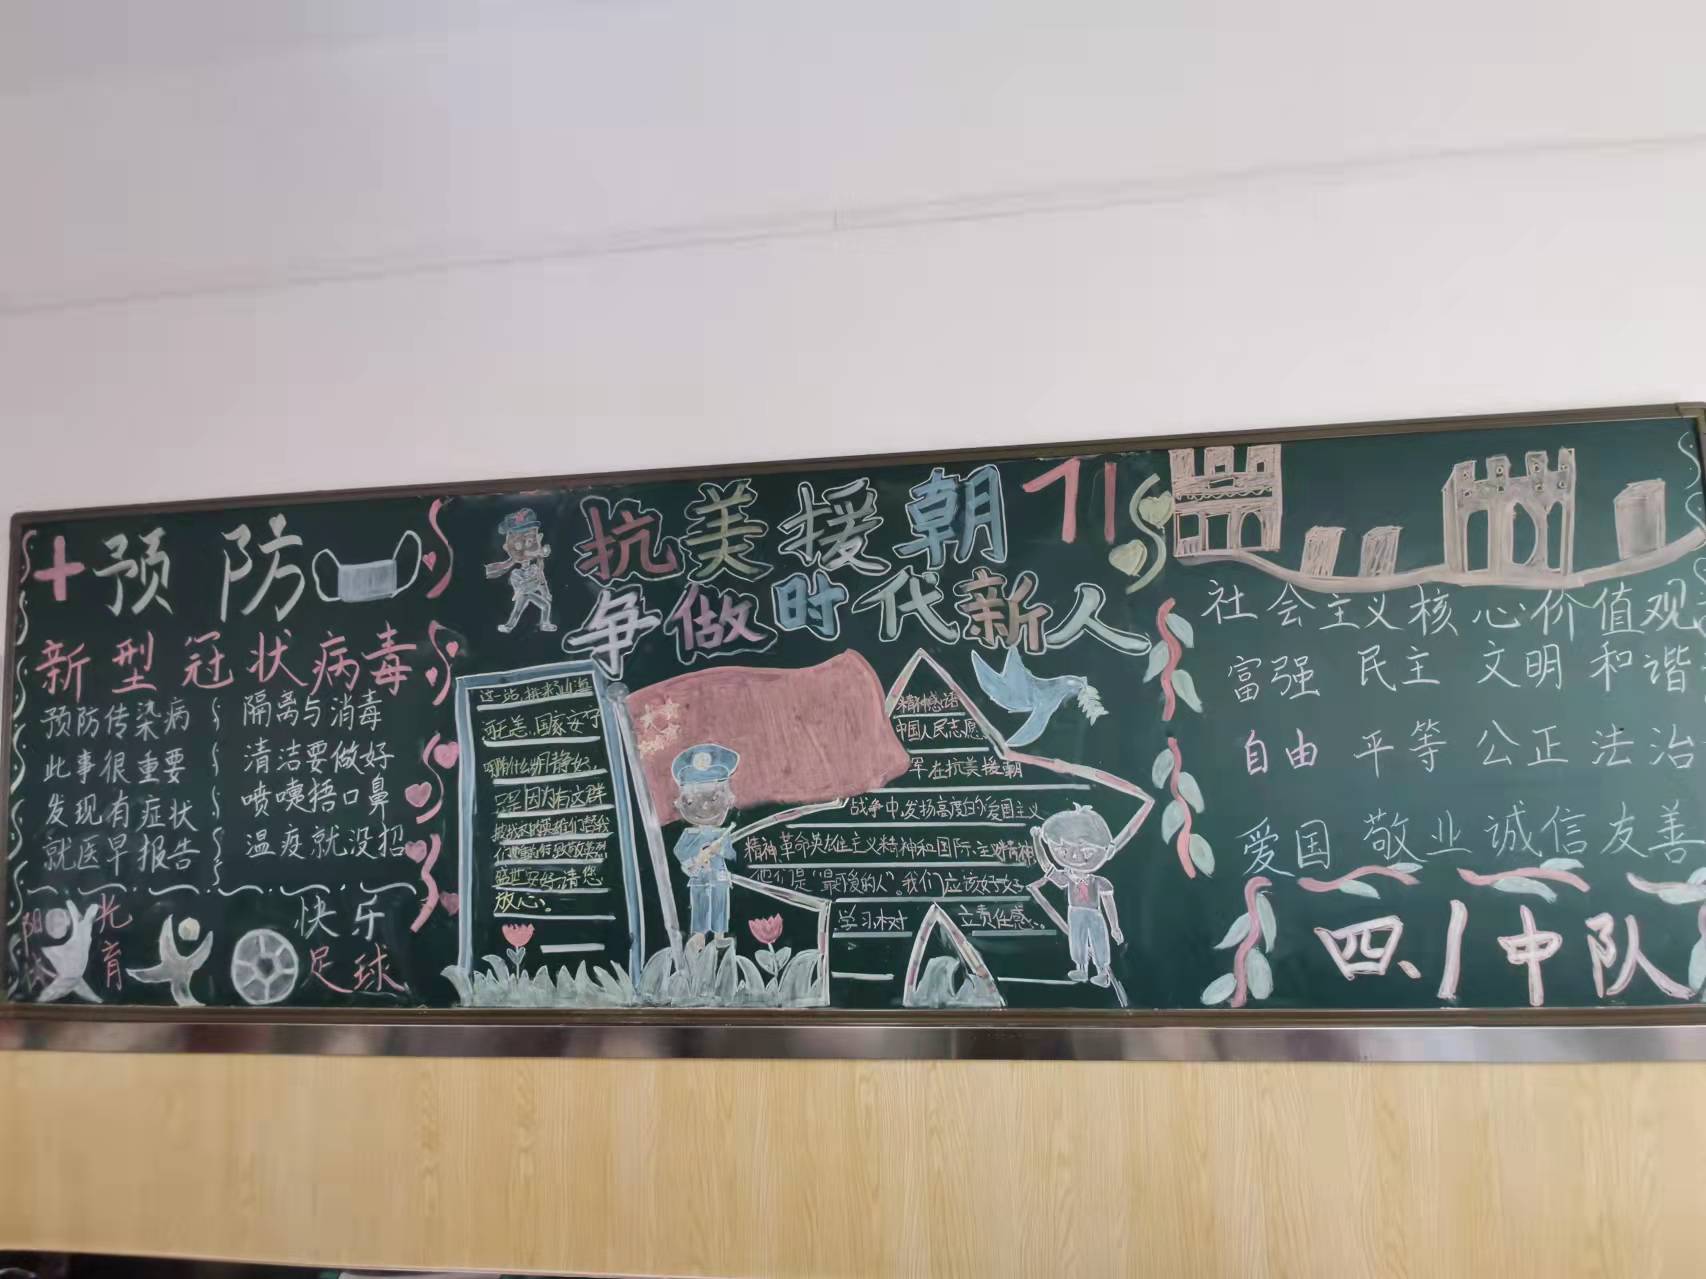 预防
新型冠状病毒
预防传染病
此事很重要
发现有症状
就医早报告
隔离与消毒
清洁要做好
喷嚏捂口鼻
温疫就没招
阳光
体育
快乐
足球
抗美援朝71
争做时代新人
国家安好
因为有文群
放心。
精神感语
中国人民志愿
军在抗美援朝
战争中,发扬高度的爱国主义
精神革命英雄主义精神和国际主义精神
他们是“最可爱的人”。我们应该好好
学习树立责任感。
社会主义核心价值观
富强 民主 文明 和谐
自由 平等 公正 法治
爱国 敬业 诚信 友善
四、1中队